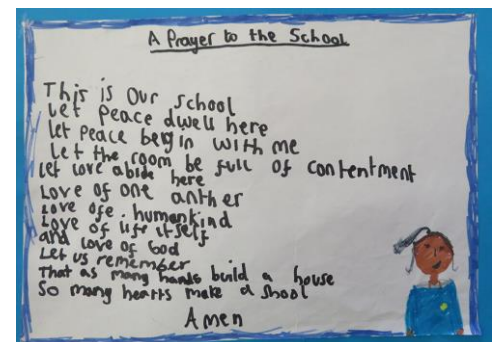 A Prayer to the School
This is our school
Let Peace dwell here
let Peace begin with me
Let the room be full of contentment
let love abide here
Love of one anther
Love ofe. humankind
Love of life itself
and love of God
Let us remember
That as many hands build a house
So many hearts make a shool
Amen